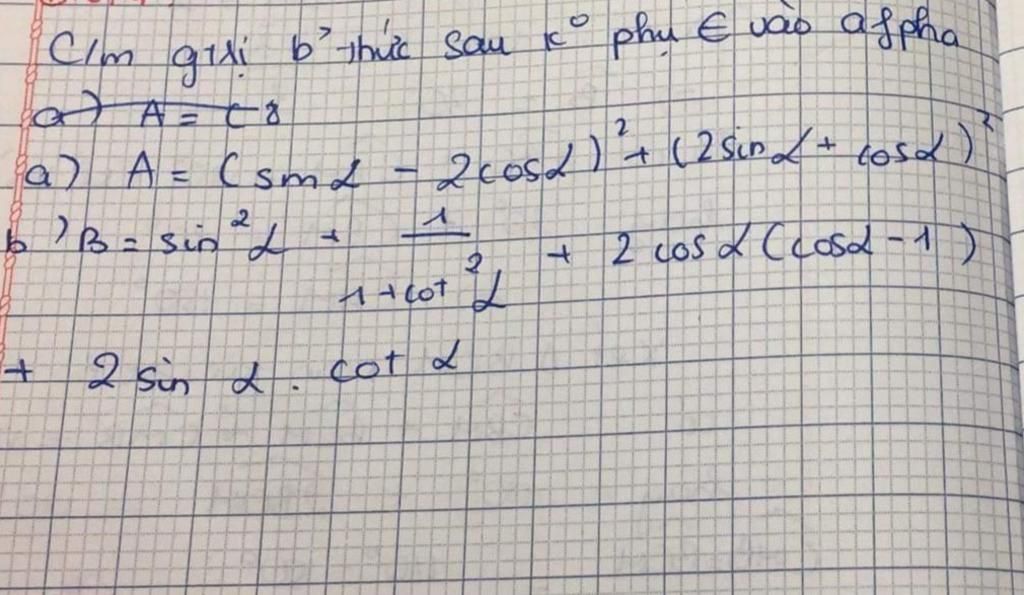 C/m gtrị b' thức sau ko phụ ∈ vào alpha
a) A = ( 8
a) A = (sinα - 2cosα)² + (2sinα + cosα)²
b) B = sin²α + 1/(1+cot²α) + 2 cosα (cosα - 1)
+ 2 sin α . cot α